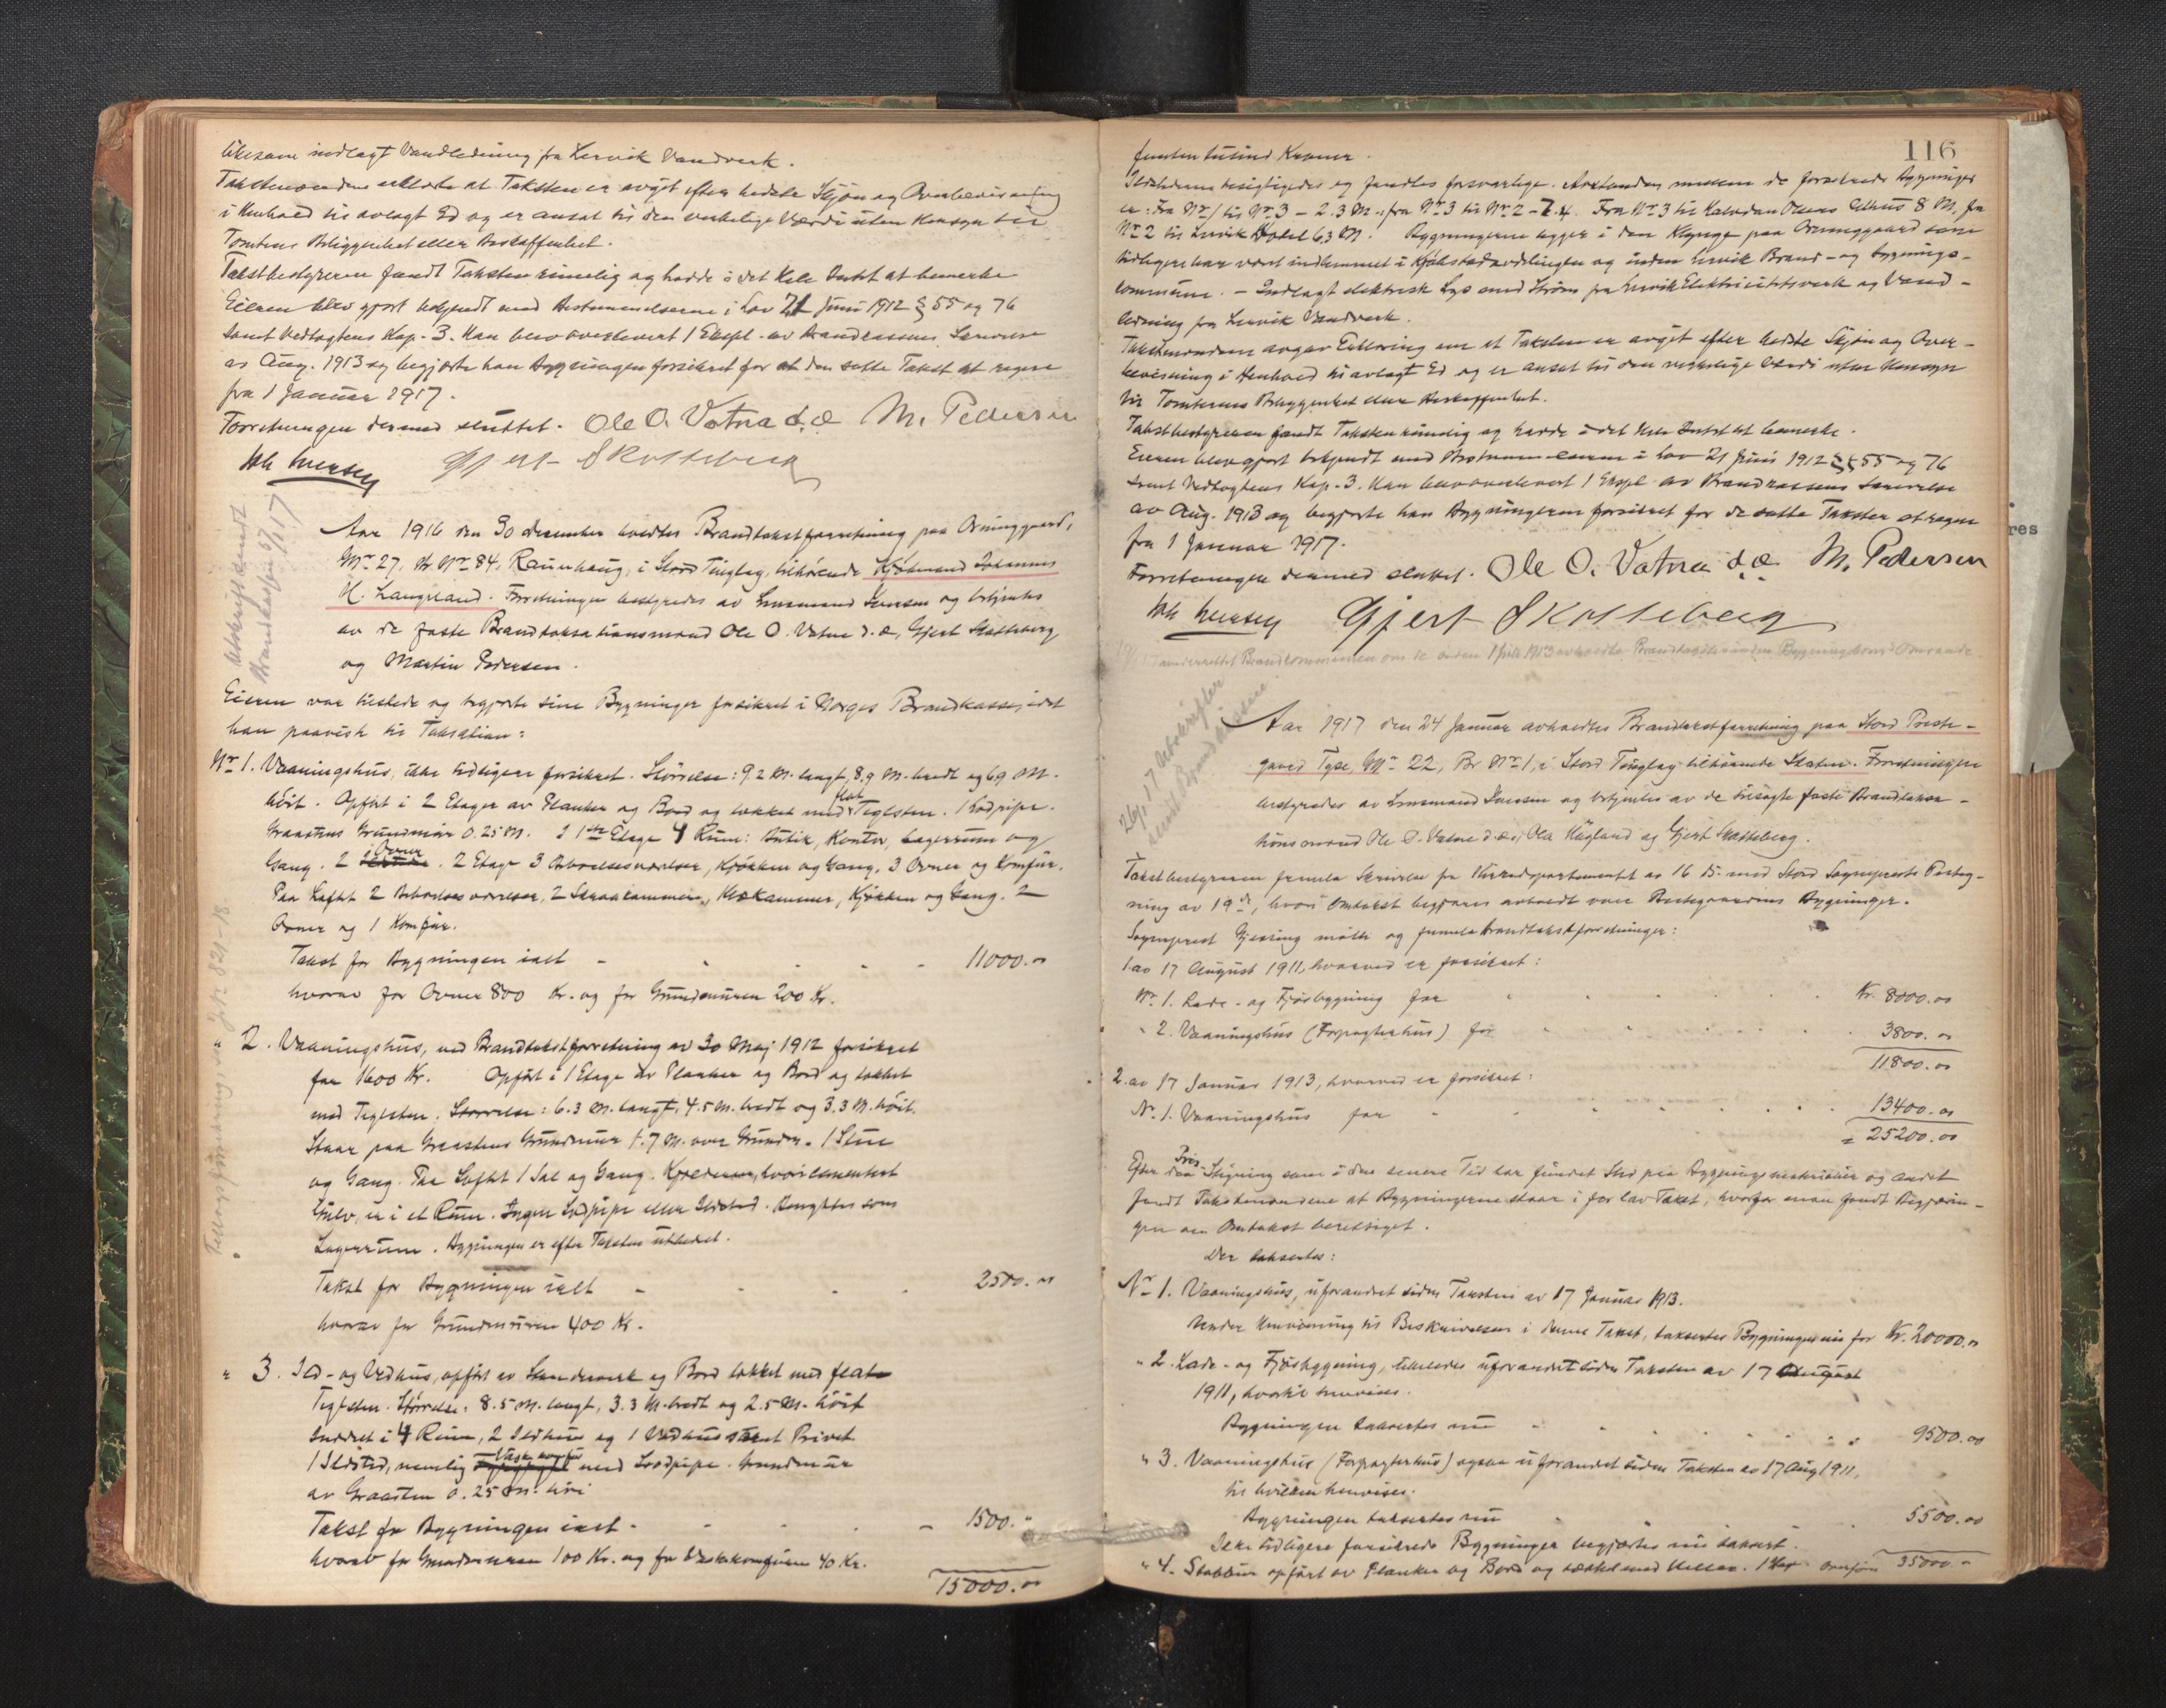 likesom indlagt Vandledning fra Lervik Vandverk.
Takstmændene erklærte at Taksten er avgit efter bedste Skjøn og Overbevisning
i Henhold til avlagt Ed og er ansat til den virkelige Værdi uten Hensyn til
Tomtens Beliggenhet eller Beskaffenhet.
Takstbestyreren fandt Taksten rimelig og hadde i det Hele Intet at bemerke
Eieren blev gjort bekjendt med Bestemmelserne i Lov 21 Juni 1912 § 55 og 76
samt Vedtægtens Kap. 3. Han blev overlevert 1 Expl. av Brandkassens Skrivelse
av Aug. 1913 og begjærte han Bygningen forsikret for den satte Takst at regne
fra 1 Januar 1917.
Forretningen dermed sluttet. Ole O. Vatna d.æ. M. Pedersen
Joh Iversen Gjert Skotteberg
Avskrift sendt
Brandkassen 5/1 17
Aar 1916 den 30 december holdtes Brandtakstforretning paa Orninggaard,
Gr. Nr 27, Br. Nr 84, Raunhaug, i Stord Tinglag, tilhørende Kjøbmand Johannes
H. Langeland. Forretningen bestyredes av Lensmand Iversen og betjentes
av de faste Brandtakstationsmænd Ole O. Vatne d.æ, Gjert Skotteberg
og Martin Pedersen.
Eieren var tilstede og begjærte sine Bygninger forsikret i Norges Brandkasse, idet
han paaviste til Taksation:
Nr 1. Vaaningshus, ikke tidligere forsikret. Størrelse: 9.2 M. langt, 8.9 M. bredt og 6.9 M.
høit. Opført i 2 Etager av Planker og Bord og tækket med flat Teglsten. 1 Lodpipe.
Graastens Grundmur 0.25 M. I 1ste Etage 4 Rum: Butik, Kontor, Lagerrum og
Gang. 2 Ovner. 2 Etage 3 Beboelsesværelser, Kjøkken og Gang, 3 Ovner og Komfur.
Paa Loftet 2 Beboelsesværelser, 2 Skraakammers, Mørkammer, Kjøkken og Gang. 2
Ovner og 1 Komfur.
Takst for Bygningen ialt - 11000.00
hvorav for Ovner 800 Kr. og for Grundmuren 200 Kr.
" 2. Vaaningshus, ved Brandtakstforretning av 30 Maj 1912 forsikret
for 1600 Kr. Opført i 1 Etage av Planker og Bord og tækket
med Teglsten. Størrelse: 6.3 M. langt, 4.5 M. bredt og 3.3 M. høit.
Staar paa Graastens Grundmur 1.7 M. over Grunden. 1 Stue
og Gang. Paa Loftet 1 Sal og Gang. Kjælderen, hvori cementert
Gulv, er i et Rum. Ingen Lodpipe eller Ildsted. Benyttes som
Lagerrum. Bygningen er efter Taksten utbedret.
Takst for Bygningen ialt - 2500.00
hvorav for Grundmuren 400 Kr.
" 3. Ild- og Vedhus, opført av Stenderverk og Bord tækket med flate
Teglsten. Størrelse: 8.5 M. langt, 3.3 M. bredt og 2.5 M. høit
Inddelt i 4 Rum, 2 Ildhus og 1 Vedhus samt Privet
1 Ildsted, nemlig Vaskekomfur med Lodpipe. Grundmur
av Graasten 0.25 M. høi
Takst for Bygningen ialt - 1500."
hvorav for Grundmuren 100 Kr. og for Vaskekomfuren 40 Kr.
15000.00
116
femten tusind Kroner.
Ildstederne besigtigedes og fandtes forsvarlige. Avstanden mellem de forsikrede Bygninger
er: Fra Nr 1 til Nr 3 - 2.3 M.; fra Nr 3 til Nr 2 - 7.4. Fra Nr 3 til Halvdan Olsens Ildhus 8 M, fra
Nr 2 til Lervik Hotel 6.3 M. Bygningerne ligger i den Klynge paa Orninggaard som
tidligere har været indlemmet i Kjøbstadavdelingen og inden Lervik Brand- og Bygnings-
commune. - Indlagt elektrisk Lys med Strøm fra Lervik Elektricitetsverk og Vand-
ledning fra Lervik Vandverk.
Takstmændene avgav Erklæring om at Taksten er avgit efter bedste Skjøn og Over-
bevisning i Henhold til avlagt Ed og er ansat til den virkelige Værdi uten Hensyn
til Tomternes Beliggenhet eller Beskaffenhet.
Takstbestyreren fandt Taksten rimelig og hadde i det Hele Intet at bemerke.
Eieren blev gjort bekjendt med Bestemmelserne i Lov 21 Juni 1912 §§ 55 og 76
samt Vedtægtens Kap. 3. Han blev overlevert 1 Expl. av Brandkassens Skrivelse
av Aug. 1913 og begjærte han Bygningerne forsikret for de satte Takster at regne
fra 1 Januar 1917.
Forretningen dermed sluttet. Ole O. Vatna d.æ. M. Pedersen
Joh Iversen Gjert Skotteberg
underrettet Brandkommissionen om de siden 1 Juli 1913 avholdte Brandtakster inden Bygningskomm. Omraade
26/1 17 avskrifter
sendt Brandkassen
Aar 1917 den 24 Januar avholdtes Brandtakstforretning paa Stord Preste-
gaard Tyse, Gr. Nr 22, Br Nr 1, i Stord Tinglag tilhørende Staten. Forretningen
bestyredes av Lensmand Iversen og betjentes av de tilsagte faste Brandtaksa-
tionsmænd Ole O. Vatne d.æ., Ola Høgland og Gjert Skotteberg.
Takstbestyreren fremla Skrivelse fra Kirkedepartementet av 16 ds. med Stord Sogneprests Paateg-
ning av 19de, hvori Omtakst begjæres avholdt over Prestegaardens Bygninger.
Sogneprest Gjessing møtte og fremla Brandtakstforretninger:
1. av 17 August 1911, hvorved er forsikret:
Nr. 1. Lade- og Fjøsbygning for Kr. 8000.00
" 2. Vaaningshus (Forpagterhus) for 3800.00
11800.00
2. av 17 Januar 1913, hvorved er forsikret:
Nr. 1. Vaaningshus for 13400.00
= 25200.00
Efter den Pris-Stigning som i den senere Tid har fundet Sted paa Bygningsmaterialier og andet
fandt Takstmændene at Bygningerne staar i for lav Takst, hvorfor man fandt Begjærin-
gen om Omtakst berettiget.
Der takseres:
Nr 1. Vaaningshus, uforandret siden Taksten av 17 Januar 1913.
Under Henvisning til Beskrivelsen i denne Takst, takseres Bygningen nu for Kr. 20000.00
" 2. Lade- og Fjøsbygning, likeledes uforandret siden Taksten av 17 August
1911, hvortil henvises.
Bygningen takseres nu 9500.00
" 3. Vaaningshus (Forpagterhus) ogsaa uforandret siden Taksten av 17 Aug 1911,
til hvilken henvises.
Bygningen takseres nu 5500.00
Ikke tidligere forsikrede Bygninger begjæres nu taksert.
" 4. Stabbur opført av Planker og Bord og tækket med Heller. Overføres 35000.-
res